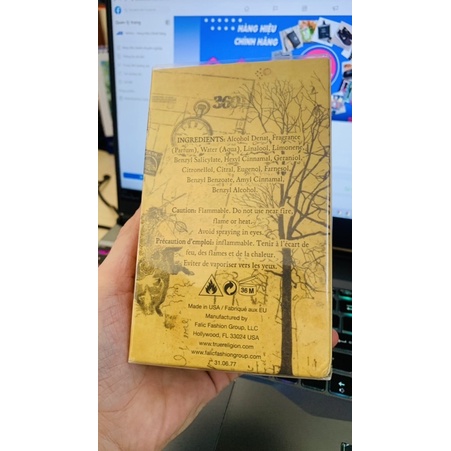 HÀNG HIỆU
CHÍNH HÃNG
INGREDIENTS: Alcohol Denat, Fragrance
(Parfum), Water (Aqua), Linalool, Limonene,
Benzyl Salicylate, Hexyl Cinnamal, Geraniol,
Citronellol, Citral, Eugenol, Farnesol,
Benzyl Benzoate, Amyl Cinnamal,
Benzyl Alcohol.
Caution: Flammable. Do not use near fire,
flame or heat.
Avoid spraying in eyes.
Précaution d'emploi: inflammable. Tenir à l'écart de
feu, des flammes et de la chaleur.
Eviter de vaporiser vers les yeux.
36 M
Made in USA / Fabriqué aux EU
Manufactured by
Falic Fashion Group, LLC
Hollywood, FL 33024 USA
www.truereligion.com
www.falicfashiongroup.com
31.06.77